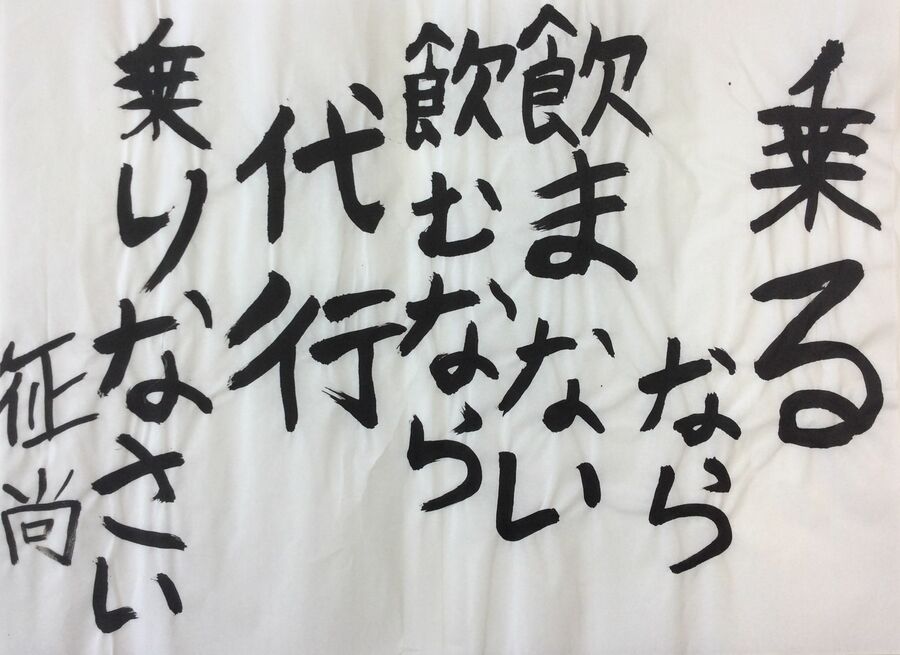 乗る
なら
飲まない
飲むなら
代行
乗りなさい
征尚